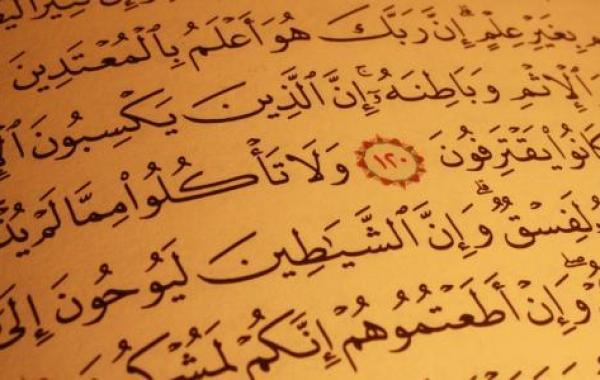 بِغَيْرِ عِلْمٍ ۗ إِنَّ رَبَّكَ هُوَ أَعْلَمُ بِٱلْمُعْتَدِينَ
ٱلْإِثْمِ وَبَاطِنَهُۥٓ ۚ إِنَّ ٱلَّذِينَ يَكْسِبُونَ
كَانُوا۟ يَقْتَرِفُونَ ١٢٠ وَلَا تَأْكُلُوا۟ مِمَّا لَمْ
لَفِسْقٌ ۗ وَإِنَّ ٱلشَّيَٰطِينَ لَيُوحُونَ إِلَىٰ
وَإِنْ أَطَعْتُمُوهُمْ إِنَّكُمْ